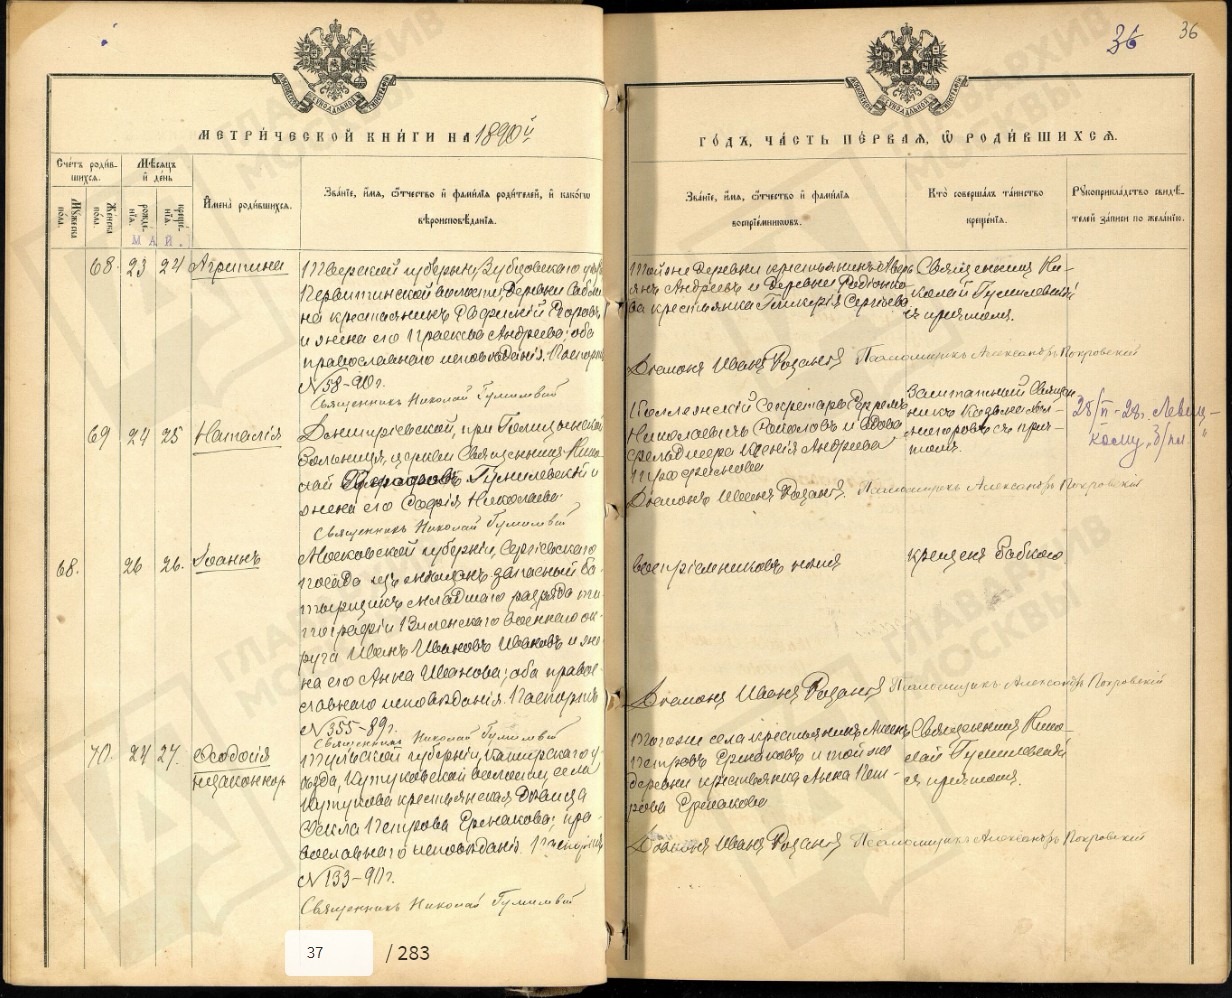 36
36
МЕТРИЧЕСКОЙ КНИГИ НА 1890й
ГОДЪ, ЧАСТЬ ПЕРВАЯ, Ѡ РОДИВШИХСЯ.
Счетъ родив-
шихся.
Мужеска
пола.
Женска
пола.
Мѣсяцъ
и день
рожде-
нія.
креще-
нія.
МАЙ.
Имена родившихся.
Званіе, имя, отчество и фамилія родителей, и какогѡ
вѣроисповѣданія.
Званіе, имя, отчество и фамилія
воспріемниковъ.
Кто совершалъ таинство
крещенія.
Рукоприкладство свидѣ-
телей записи по желанію.
68. 23 24 Агрипина
Тверской губерніи, Зубцовскаго
Первитинской волости, деревни
крестьянинъ Егоровъ
и жена его Андреева; оба
православнаго исповѣданія. Паспортъ
№ 58-90 г.
Священникъ Николай Гумилевскій
Той же деревни крестьянинъ
Андреевъ и деревни
крестьянка Гликерія Сергѣева
Священникъ Ни-
колай Гумилевскій
съ причтомъ.
Діаконъ Иванъ Розановъ Псаломщикъ Александръ Покровскій
69 24 25 Наталія
Дмитріевской, при Голицынской
больницѣ, церкви Священникъ Нико-
лай Гумилевскій и
жена его Софія Николаева
Священникъ Николай Гумилевскій
Коллежскій Секретарь Сергѣй
Николаевичъ и вдова
Ксенія Андреева
Заштатный Священ-
никъ
съ прич-
томъ.
28/II-28. Левиц-
кому, З/пл.
Діаконъ Иванъ Розановъ Псаломщикъ Александръ Покровскій
68. 26 26. Іоаннъ
Московской губерніи, Сергіевскаго
посада изъ мѣщанъ запасный ба-
талеръ младшаго разряда ти-
пографіи Виленскаго военнаго ок-
руга Иванъ Ивановъ Ивановъ и же-
на его Анна Иванова; оба право-
славнаго исповѣданія. Паспортъ
№ 355-89 г.
Священникъ Николай Гумилевскій
воспріемниковъ
крещенъ бабкою
Діаконъ Иванъ Розановъ Псаломщикъ Александръ Покровскій
70. 27 27. Ѳеодосія
незаконнор.
Тульской губерніи, Каширскаго у-
ѣзда, Кутуковской волости, села
Кутукова крестьянская дѣвица
Ѳекла Петрова Ермакова; пра-
вославнаго исповѣданія. Паспортъ
№ 133-90 г.
Священникъ Николай Гумилевскій
Того же села крестьянинъ
Петровъ Ермаковъ и той же
деревни крестьянка Анна Пет-
рова Ермакова
Священникъ Нико-
лай Гумилевскій
съ причтомъ.
Діаконъ Иванъ Розановъ Псаломщикъ Александръ Покровскій
37 / 283
ГЛАВАРХИВ
МОСКВЫ